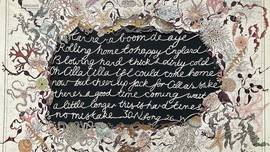 Tarrare a boom de aye
Rolling home to happy England
Blowing hard thick & dirty cold
Oh Cilla Cilla if I could take home
now but cheer up Jack for Cilla's sake
there's a good time coming wait
a little longer this is hard times
no mistake